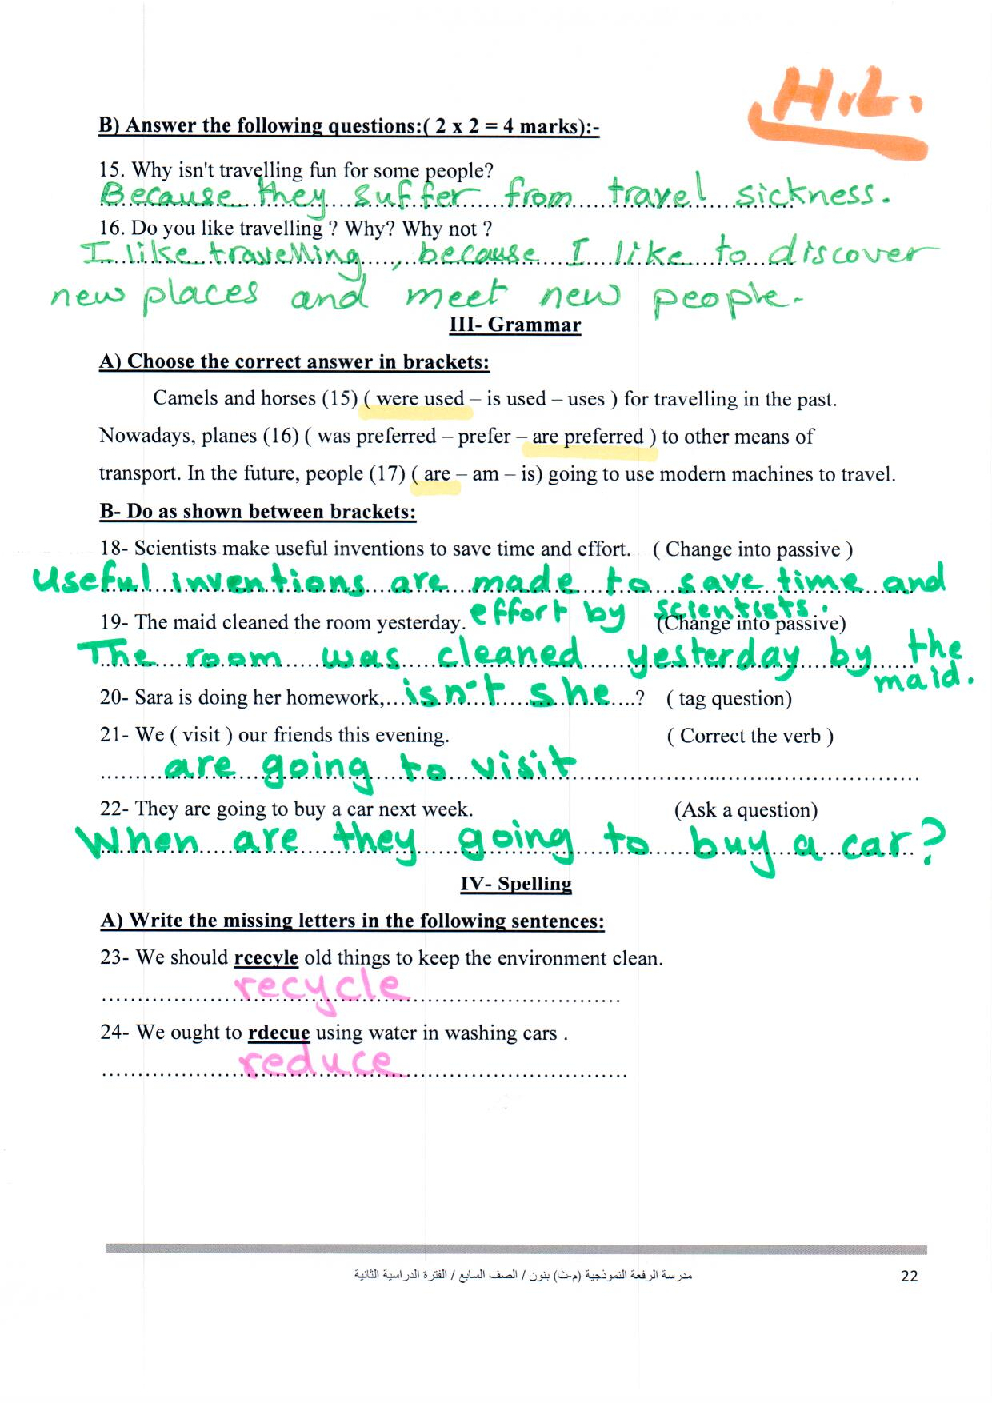 H.L.
B) Answer the following questions:( 2 x 2 = 4 marks):-
15. Why isn't travelling fun for some people?
Because they suffer from travel sickness.
16. Do you like travelling ? Why? Why not ?
I like travelling, because I like to discover
new places and meet new people.
III- Grammar
A) Choose the correct answer in brackets:
Camels and horses (15) ( were used – is used – uses ) for travelling in the past.
Nowadays, planes (16) ( was preferred – prefer – are preferred ) to other means of
transport. In the future, people (17) ( are – am – is) going to use modern machines to travel.
B- Do as shown between brackets:
18- Scientists make useful inventions to save time and effort. ( Change into passive )
Useful inventions are made to save time and
effort by scientists.
19- The maid cleaned the room yesterday. (Change into passive)
The room was cleaned yesterday by the
maid.
20- Sara is doing her homework,...isn't she....? ( tag question)
21- We ( visit ) our friends this evening. ( Correct the verb )
are going to visit
22- They are going to buy a car next week. (Ask a question)
When are they going to buy a car?
IV- Spelling
A) Write the missing letters in the following sentences:
23- We should rcecyle old things to keep the environment clean.
recycle
24- We ought to rdecue using water in washing cars .
reduce
مدرسة الرفعة النموذجية (م-ث) بنون / الصف السابع / الفترة الدراسية الثانية
22